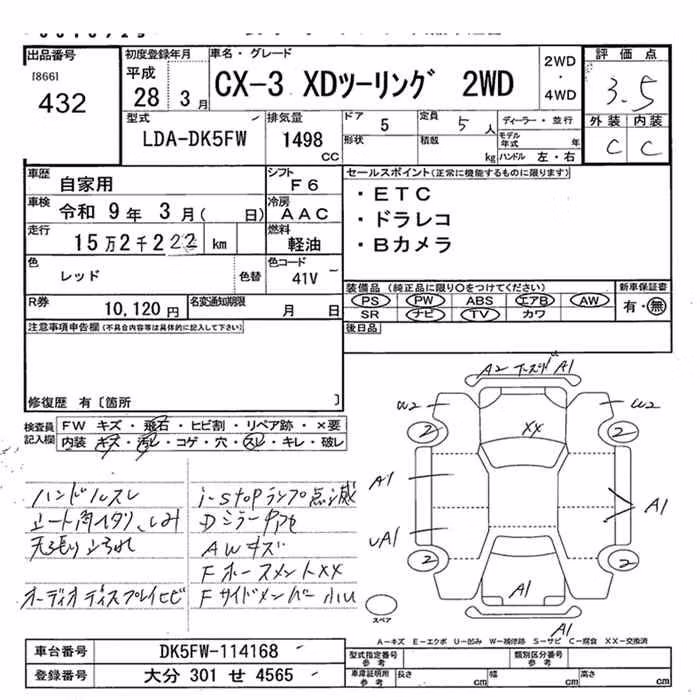 出品番号
[866]
432
初度登録年月
平成
28 3月
車名・グレード
CX-3 XDツーリング 2WD
2WD
・
4WD
評価点
3.5
型式
LDA-DK5FW
排気量
1498
CC
ドア 5
形状
定員 5人
積載 kg
ディーラー・並行
モデル年式 年
ハンドル 左・右
外装 内装
C C
車歴
自家用
シフト
F6
セールスポイント(正常に機能するものに限ります)
・ETC
・ドラレコ
・Bカメラ
車検
令和 9年 3月( 日)
冷房
AAC
走行
15万2千222 km
燃料
軽油
色
レッド
色替
色コード
41V
装備品(純正品に限り○をつけてください)
PS PW ABS エアB AW
SR ナビ TV カワ
新車保証書
有・無
R券
10,120円
名変通知期限
月 日
後日品
注意事項申告欄(不具合内容等は具体的に記入して下さい)
修復歴 有〔箇所 〕
検査員記入欄
FW キズ・飛石・ヒビ割・リペア跡・×要
内装・キズ・汚レ・コゲ・穴・スレ・キレ・破レ
ハンドルスレ
シート内ヘタリ、しみ
天張りよごれ
オーディオディスプレイヒビ
i-stopランプ点滅
Dミラーキズ
AWキズ
Fホースメントxx
Fサイドメンバー小U
A2 A1
W2
W2
xx
2
2
A1
A1
UA1
2
2
A1
A1
スペア
A-キズ E-エクボ U-凹み W-補修跡 S-サビ C-腐食 XX-交換済
車台番号
DK5FW-114168
登録番号
大分 301 せ 4565
型式指定番号
参考
類別区分番号
参考
車庫証明用
参考
長さ cm
幅 cm
高さ cm